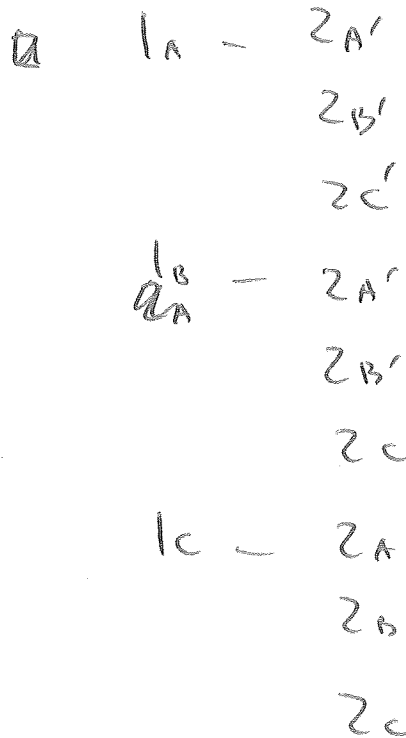 a 1A - 2A'
2B'
2C'
1B - 2A'
aA
2B'
2C
1C - 2A
2B
2C